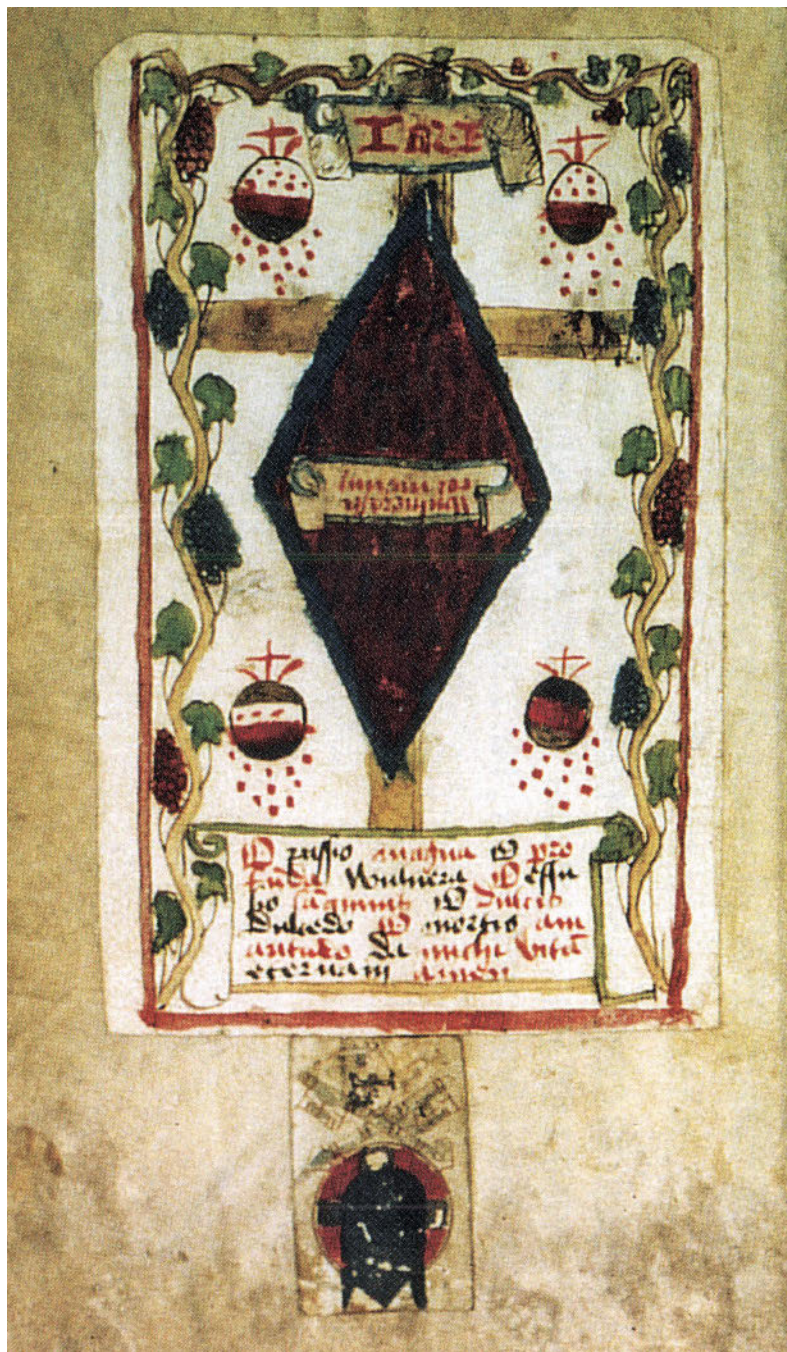 INRI
O passio magna O pro
funda Wulnera O effu
sio sāguinis O dulcis
Dulcedo O mortis am
aritudo da michi vitā
eternam amen